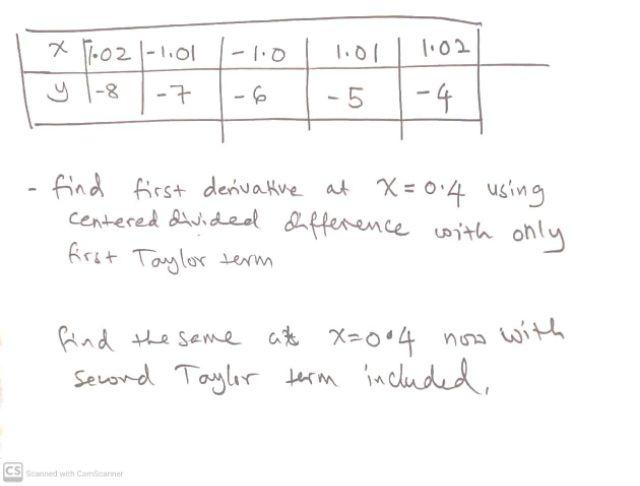 x 1.02 -1.01 -1.0 1.01 1.02
y -8 -7 -6 -5 -4
- find first derivative at x = 0.4 using
centered divided difference with only
first Taylor term
find the same at x=0.4 now with
second Taylor term included,
CS Scanned with CamScanner